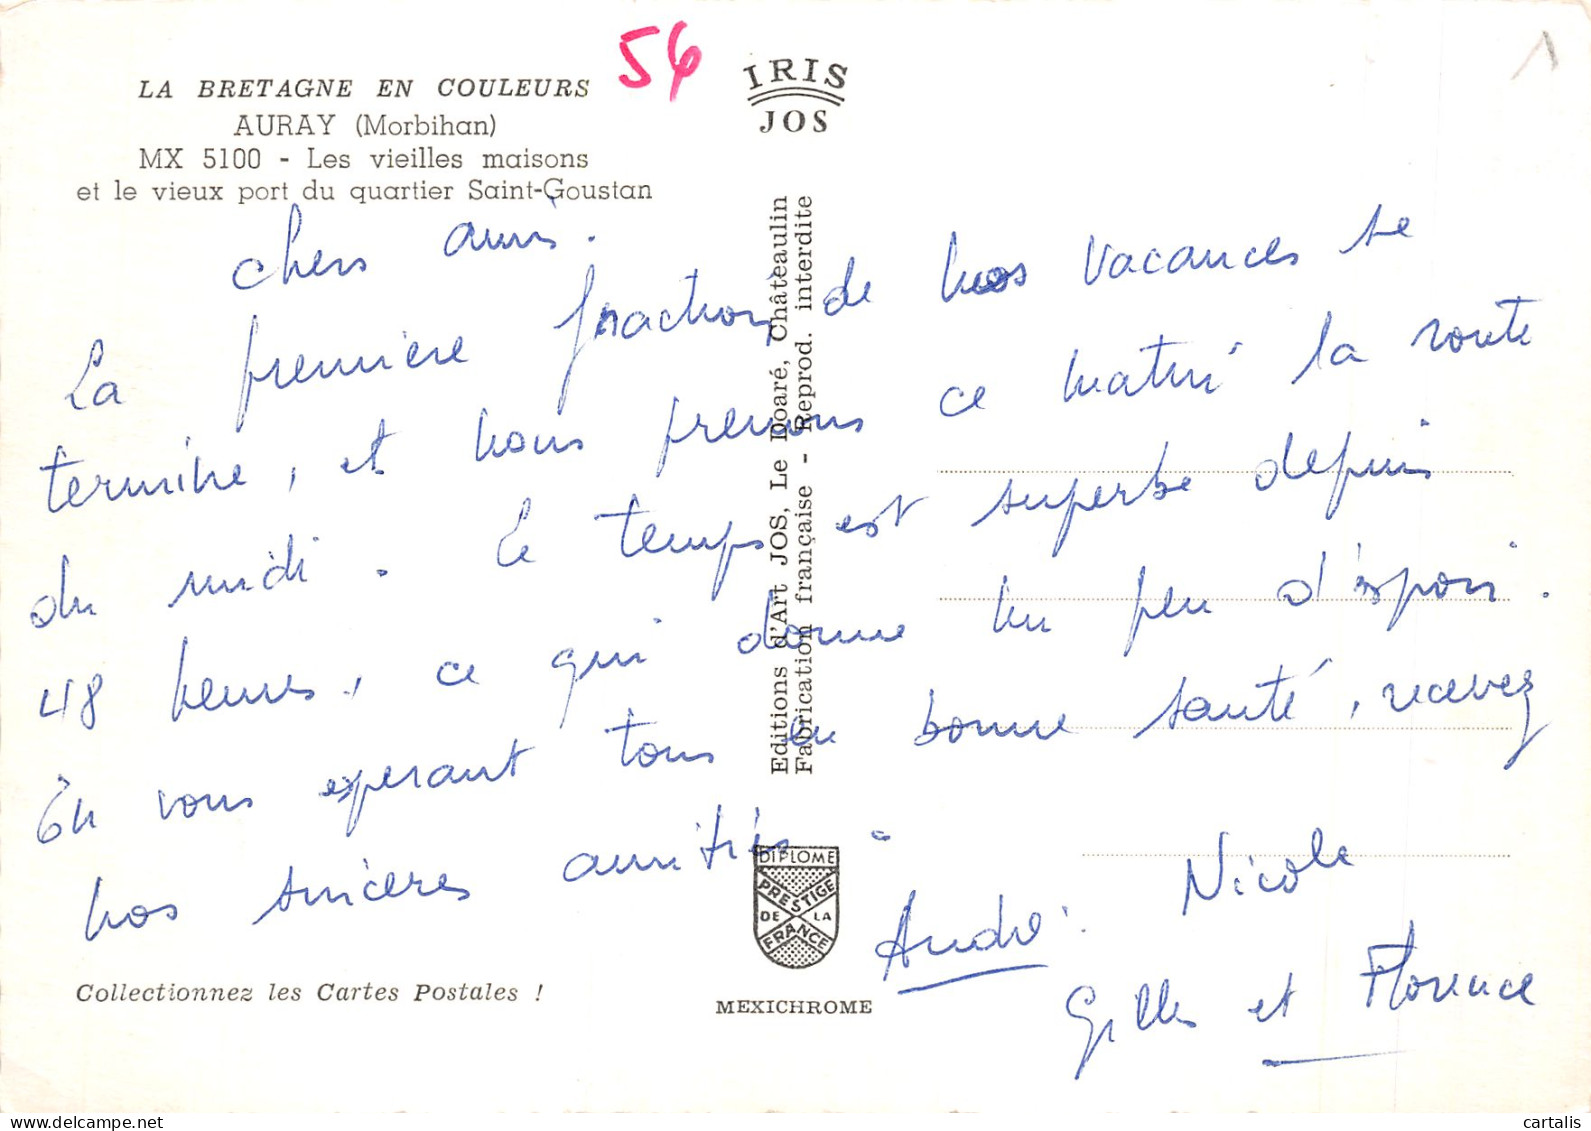 LA BRETAGNE EN COULEURS
AURAY (Morbihan)
MX 5100 - Les vieilles maisons
et le vieux port du quartier Saint-Goustan
56
IRIS
JOS
1
Chers amis.
La première fraction de nos vacances se
termine, et nous prenons ce matin la route
du midi. Le temps est superbe depuis
48 heures, ce qui donne un peu d'espoir.
En vous espérant tous en bonne santé, recevez
nos sincères amitiés.
André. Nicole
Gilles et Florence
Editions d'Art JOS, Le Doaré, Châteaulin
Fabrication française - Reprod. interdite
DIPLOME
PRESTIGE
DE LA
FRANCE
Collectionnez les Cartes Postales !
MEXICHROME
cartalis